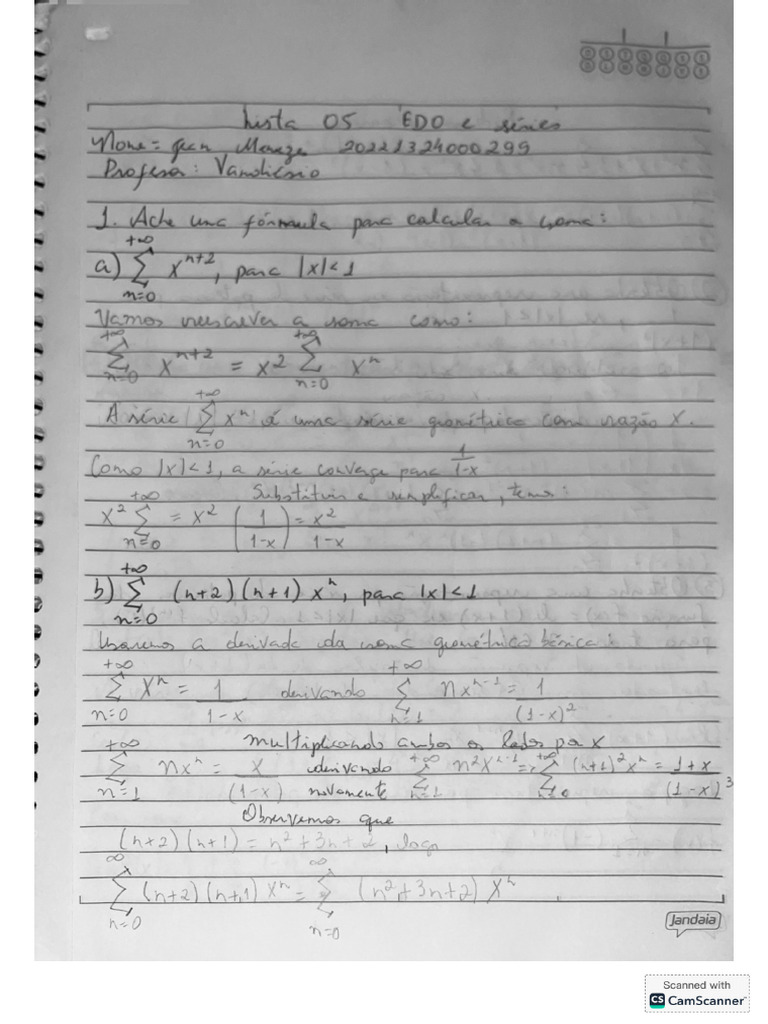 Lista 05 EDO e séries
Nome = Jean Meneze 20221324000299
Professor: Vandiésio
1. Ache uma fórmula para calcular a soma:
a) +∞ ∑ n=0 x^{n+2}, para |x|<1
Vamos reescrever a soma como:
+∞ ∑ n=0 x^{n+2} = x^2 +∞ ∑ n=0 x^n
A série +∞ ∑ n=0 x^n é uma série geométrica com razão x.
Como |x|<1, a série converge para 1/(1-x)
Substituir e simplificar, temos:
x^2 +∞ ∑ n=0 = x^2 (1/(1-x)) = x^2/(1-x)
b) +∞ ∑ n=0 (n+2)(n+1) x^n, para |x|<1
Usaremos a derivada da soma geométrica básica:
+∞ ∑ n=0 x^n = 1/(1-x) derivando +∞ ∑ n=1 nx^{n-1} = 1/(1-x)^2
multiplicando ambos os lados por x
+∞ ∑ n=1 nx^n = x/(1-x) derivando novamente +∞ ∑ n=1 n^2x^{n-1} = +∞ ∑ n=0 (n+1)^2x^n = 1+x/(1-x)^3
Observemos que
(n+2)(n+1) = n^2+3n+2, logo
∞ ∑ n=0 (n+2)(n+1) x^n = ∞ ∑ n=0 (n^2+3n+2) x^n
Jandaia
Scanned with
CS CamScanner